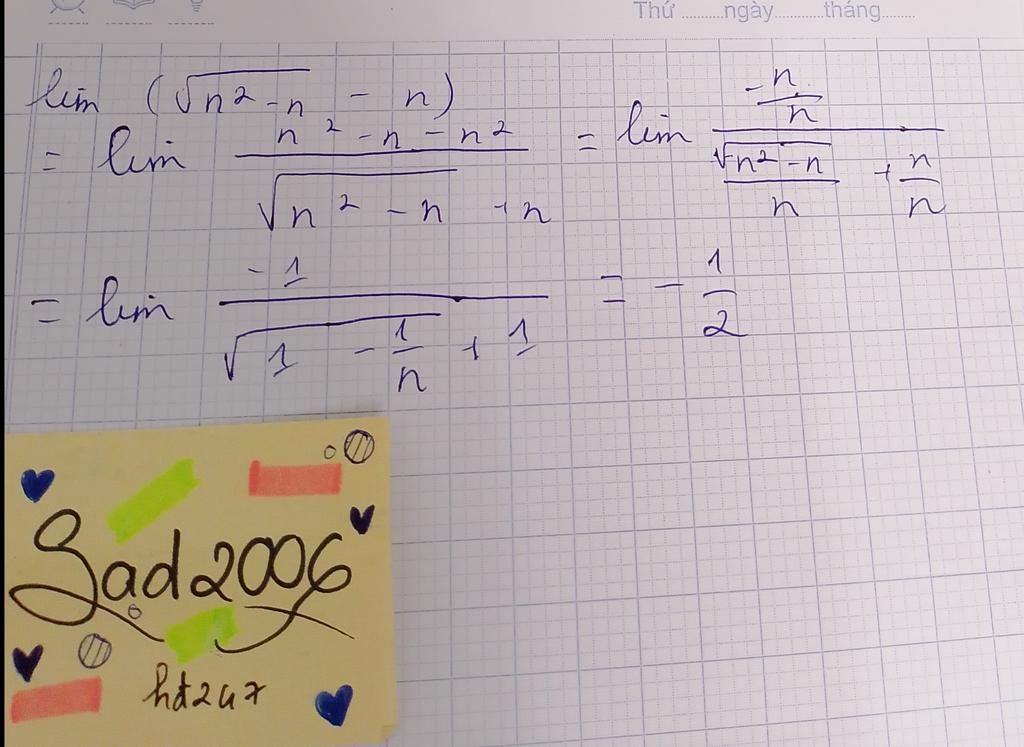 Thứ ........ngày..........tháng.......
lim (√(n² - n) - n)
= lim (n² - n - n²)/(√(n² - n) + n) = lim (-n/n)/(√(n² - n)/n + n/n)
= lim (-1)/(√(1 - 1/n) + 1) = - 1/2
Sad2006
hd247